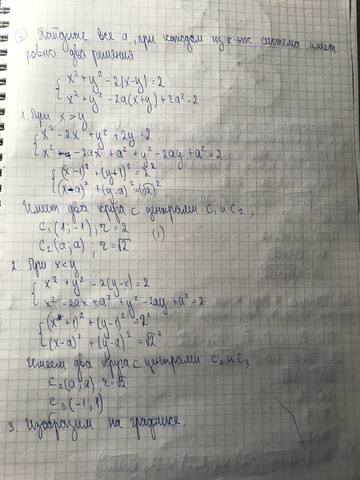 Найдите все a, при каждом из к-ых система имеет
ровно два решения
{ x² + y² - 2|x-y| = 2
x² + y² - 2a(x+y) + 2a² = 2
1. При x > y
{ x² - 2x + y² + 2y = 2
x² - 2ax + a² + y² - 2ay + a² = 2
{ (x-1)² + (y+1)² = 2²
(x-a)² + (y-a)² = (√2)²
Имеем два круга с центрами C₁ и C₂,
C₁(1, -1); r = 2
C₂(a, a); r = √2 (1)
2. При x < y
{ x² + y² - 2(y-x) = 2
x² - 2ax + a² + y² - 2ay + a² = 2
{ (x+1)² + (y-1)² = 2²
(x-a)² + (y-a)² = √2²
Имеем два круга с центрами C₂ и C₃
C₂(a, a) r = √2
C₃(-1, 1)
3. Изобразим на графике.